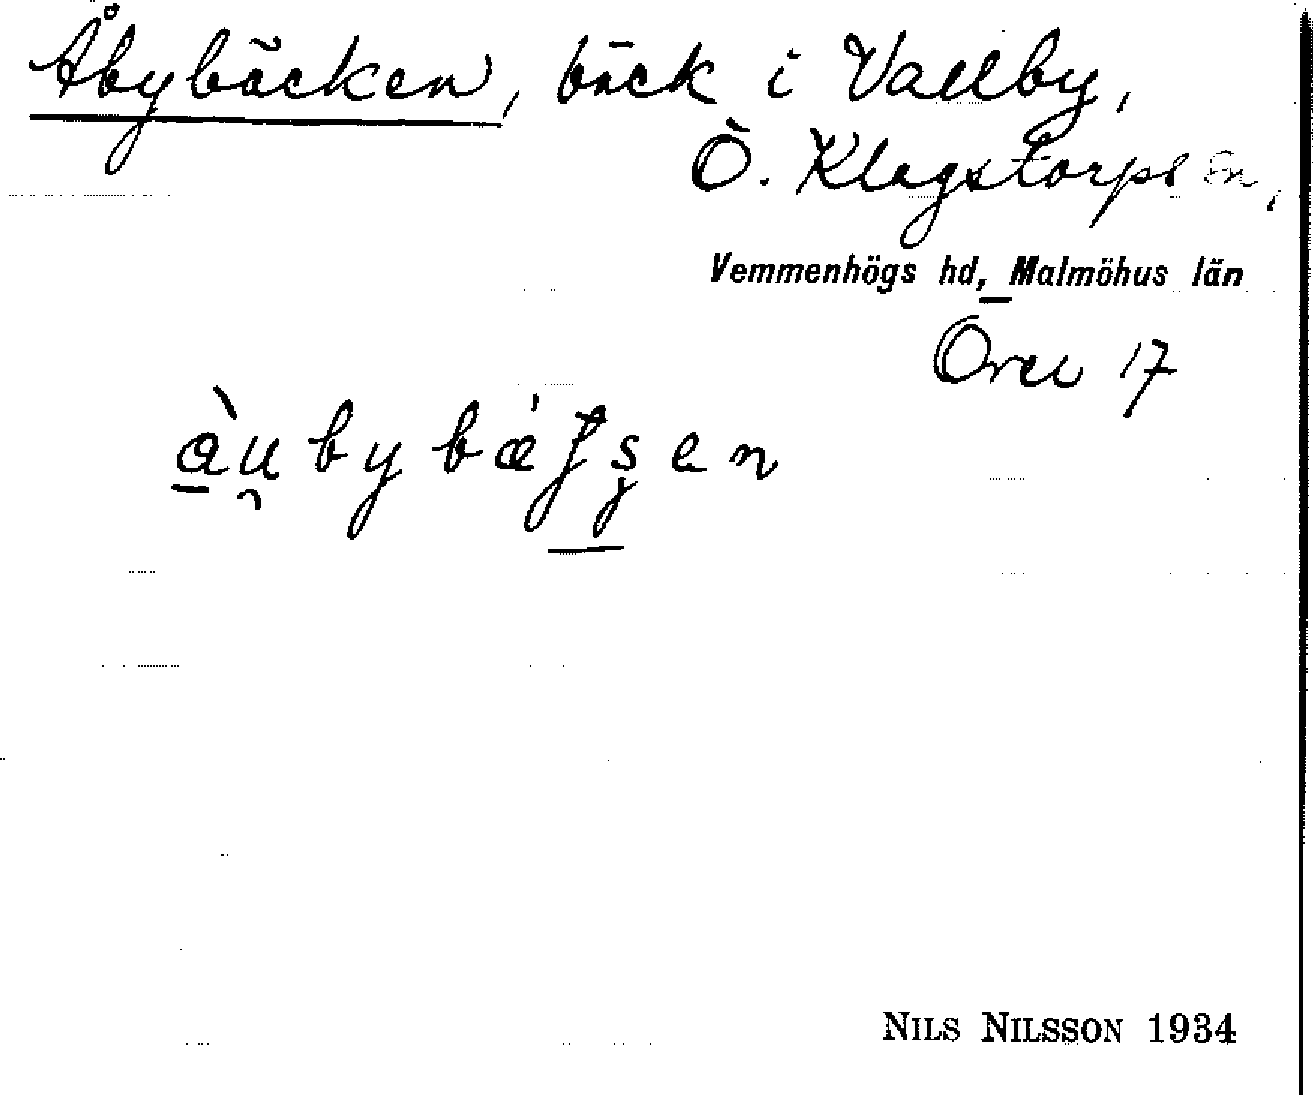 Åbybäcken, bäck i Vallby,
Ö. Klagstorps sn,
Vemmenhögs hd, Malmöhus län
17
NILS NILSSON 1934